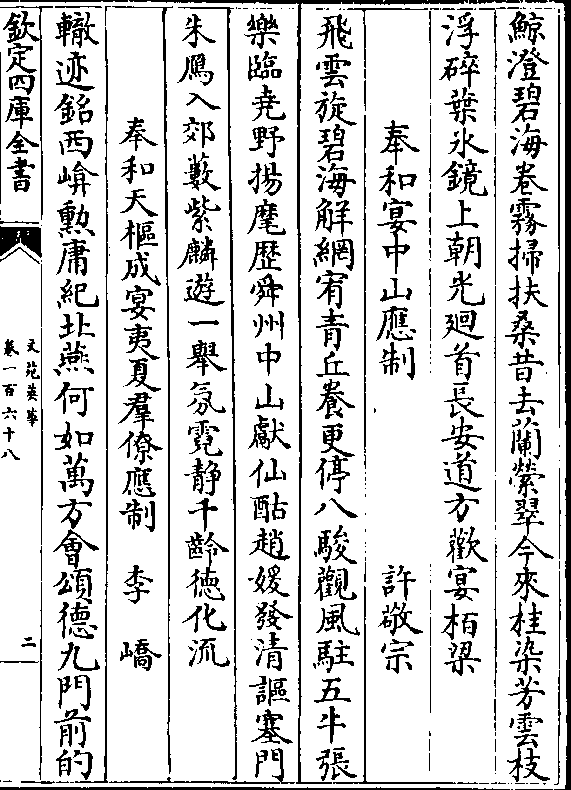 鯨澄碧海卷霧掃扶桑昔去蘭縈翠今來桂染芳雲枝
浮碎葉氷鏡上朝光廻首長安道方歡宴栢梁
奉和宴中山應制 許敬宗
飛雲旋碧海解網宥青丘養更停八駿觀風駐五牛張
樂臨堯野揚麾歴舜州中山獻仙酤趙媛發清謳塞門
朱鴈入郊藪紫麟遊一舉氛霓静千齡德化流
奉和天樞成宴夷夏羣僚應制 李嶠
轍迹銘西崦勲庸紀北燕何如萬方會頌德九門前的
欽定四庫全書
文苑英華
卷一百六十八
二